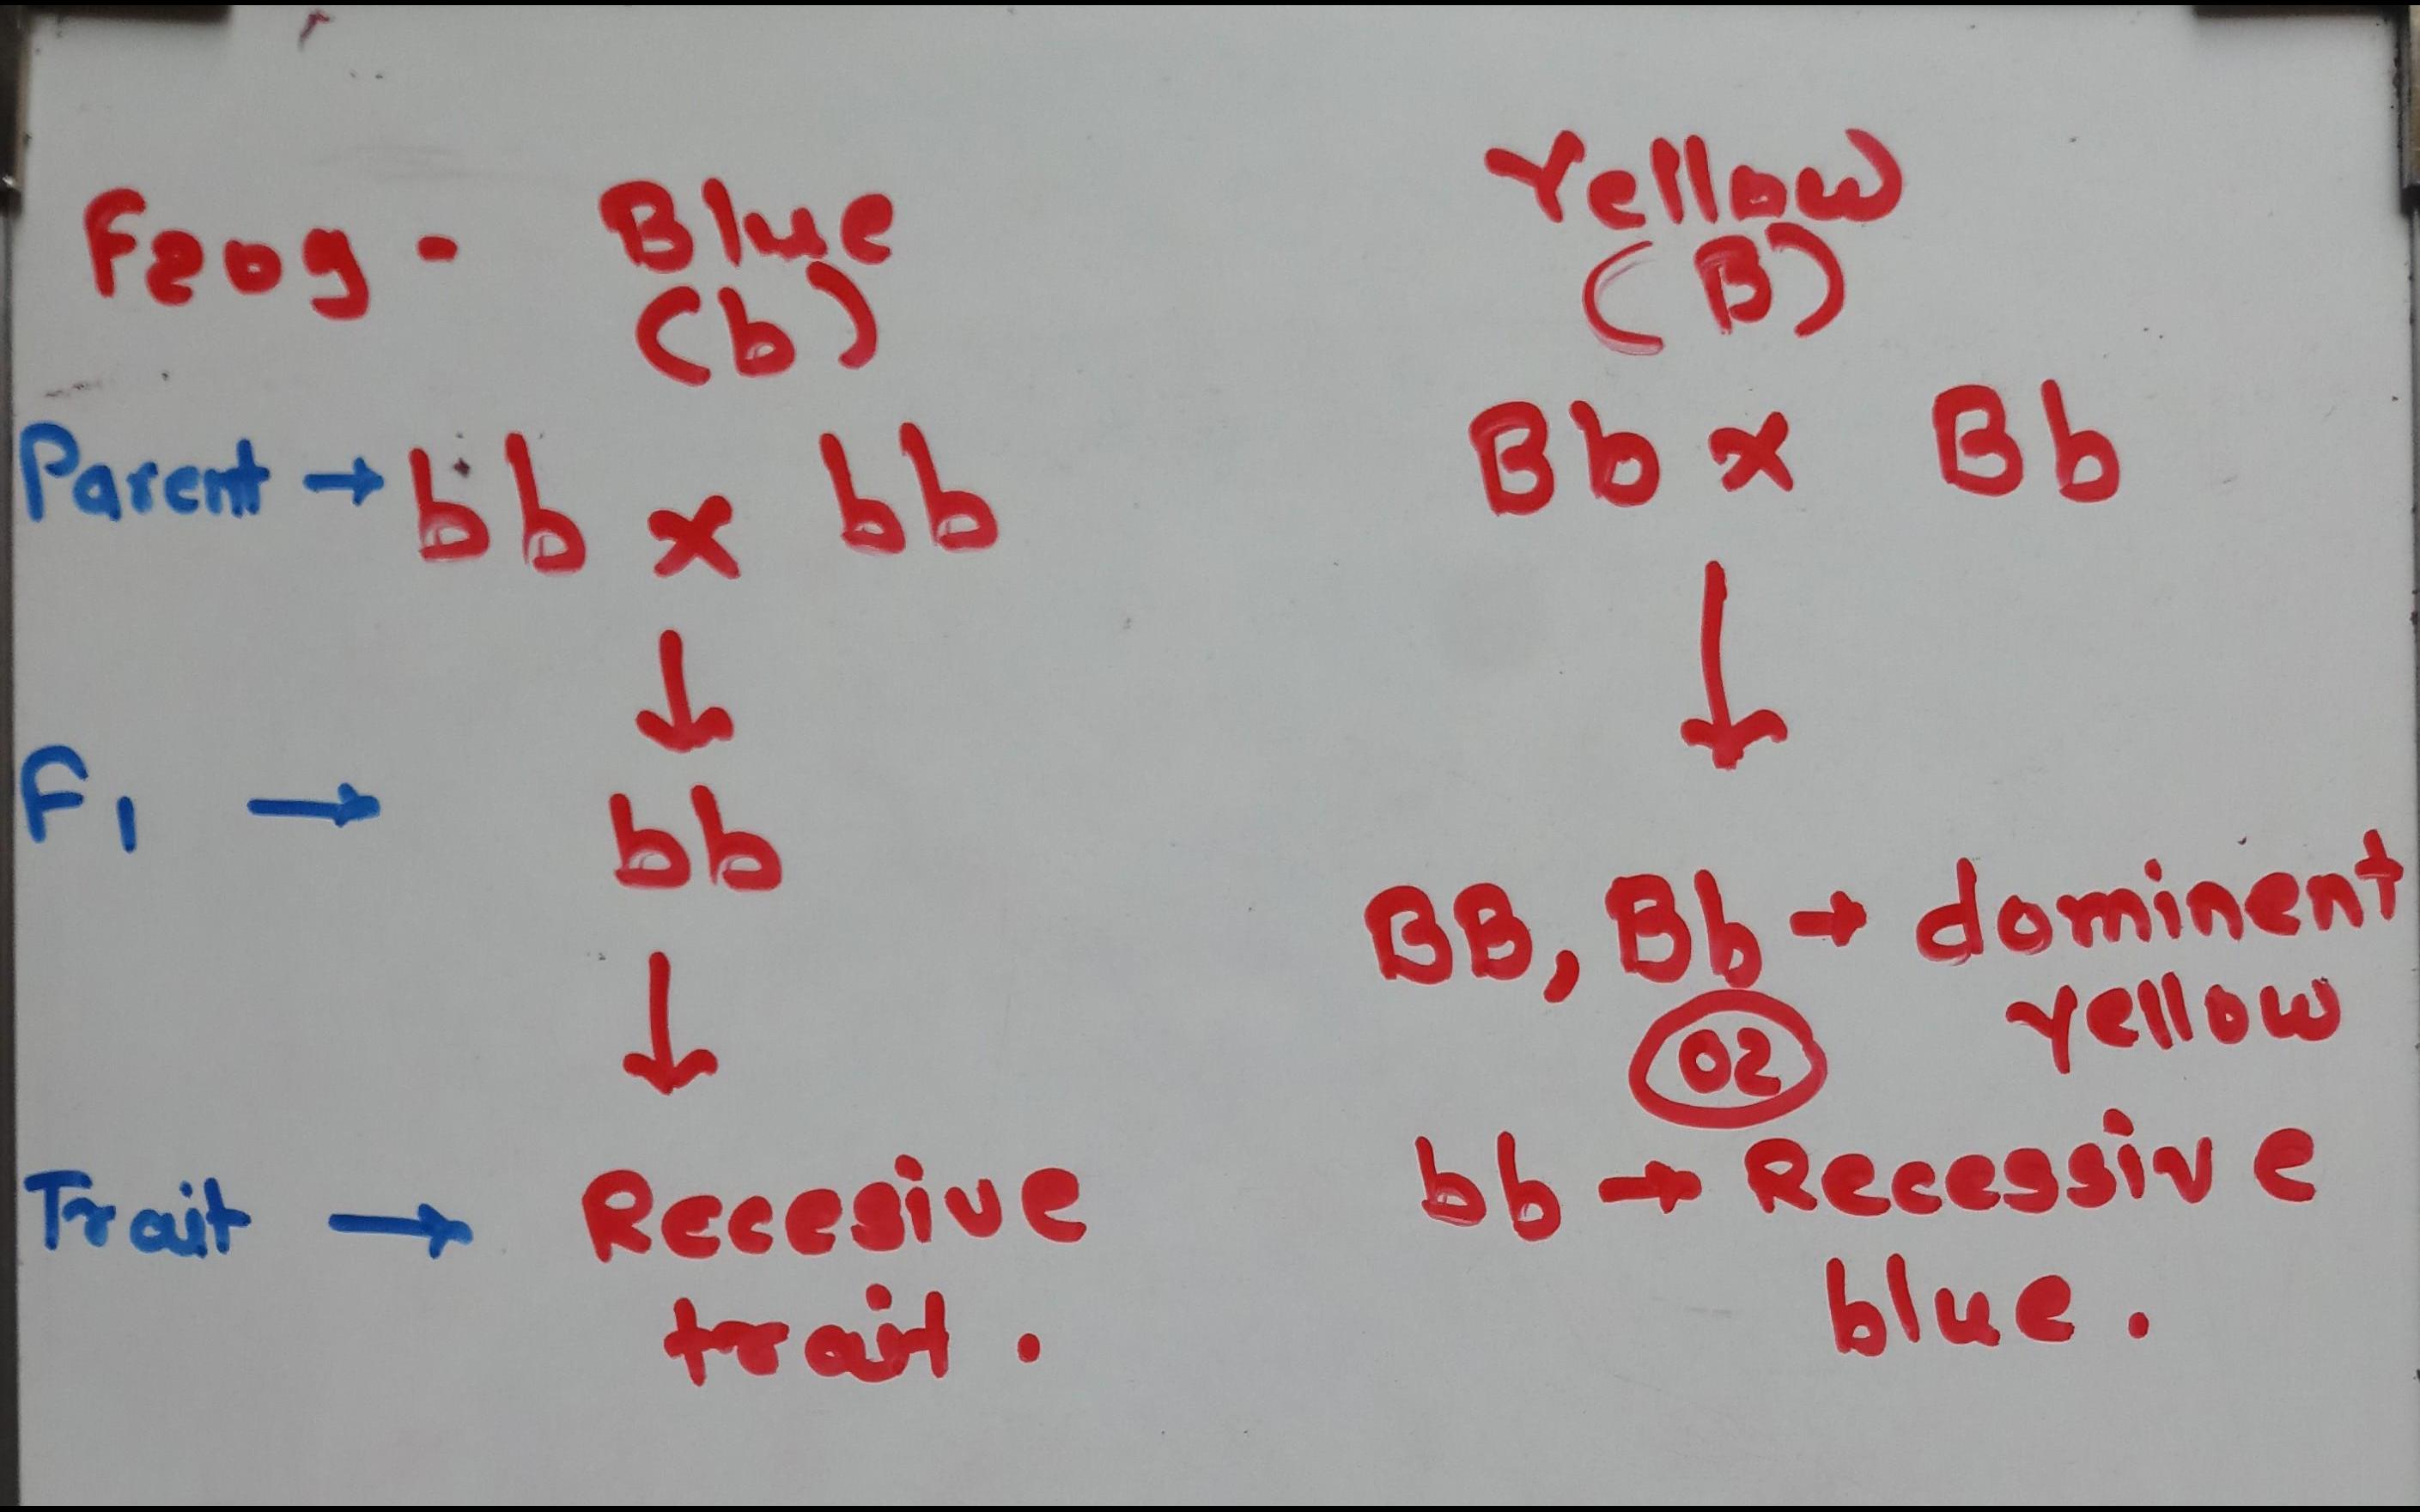 Frog - Blue Yellow
(b) (B)
Parent → bb x bb Bb x Bb
↓ ↓
F1 → bb BB, Bb → dominent
yellow
↓ 02
Trait → Recesive bb → Recessive
trait. blue.